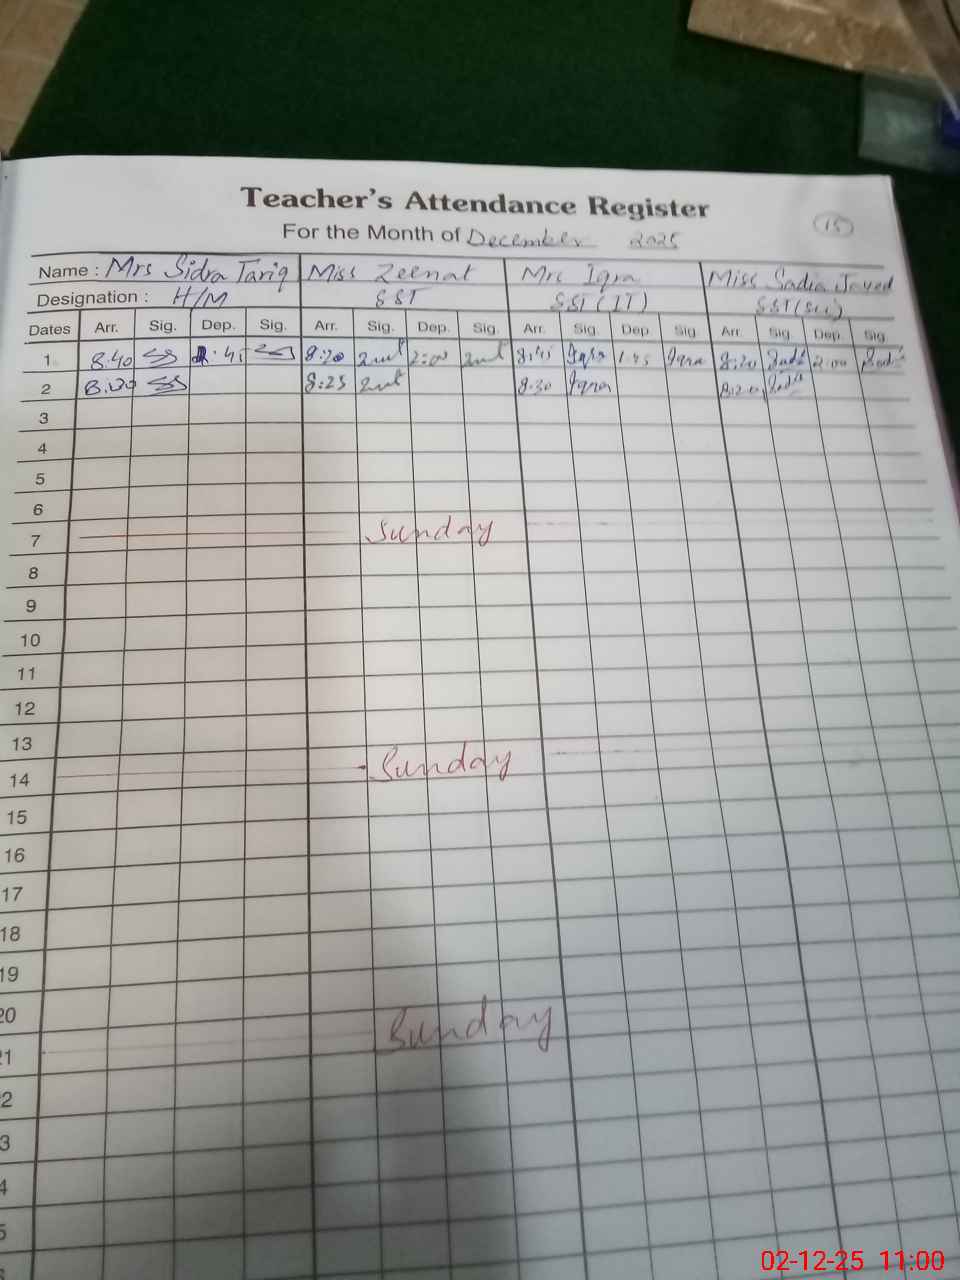 Teacher's Attendance Register
For the Month of December 2025 15
Name : Mrs Sidra Tariq Miss Zeenat Mrs Iqra Miss Sadia Javed
Designation : H/M SST SST (IT) SST (Sci)
Dates Arr. Sig. Dep. Sig. Arr. Sig. Dep. Sig. Arr. Sig. Dep. Sig. Arr. Sig. Dep. Sig
1 8:40 8:20 2:00 8:45 Iqra 1:45 Iqra 8:20 2:00
2 8:25 8:30 Iqra 8:20
3
4
5
6
7 Sunday
8
9
10
11
12
13
14 Sunday
15
16
17
18
19
20
21 Sunday
2
3
4
5
02-12-25 11:00